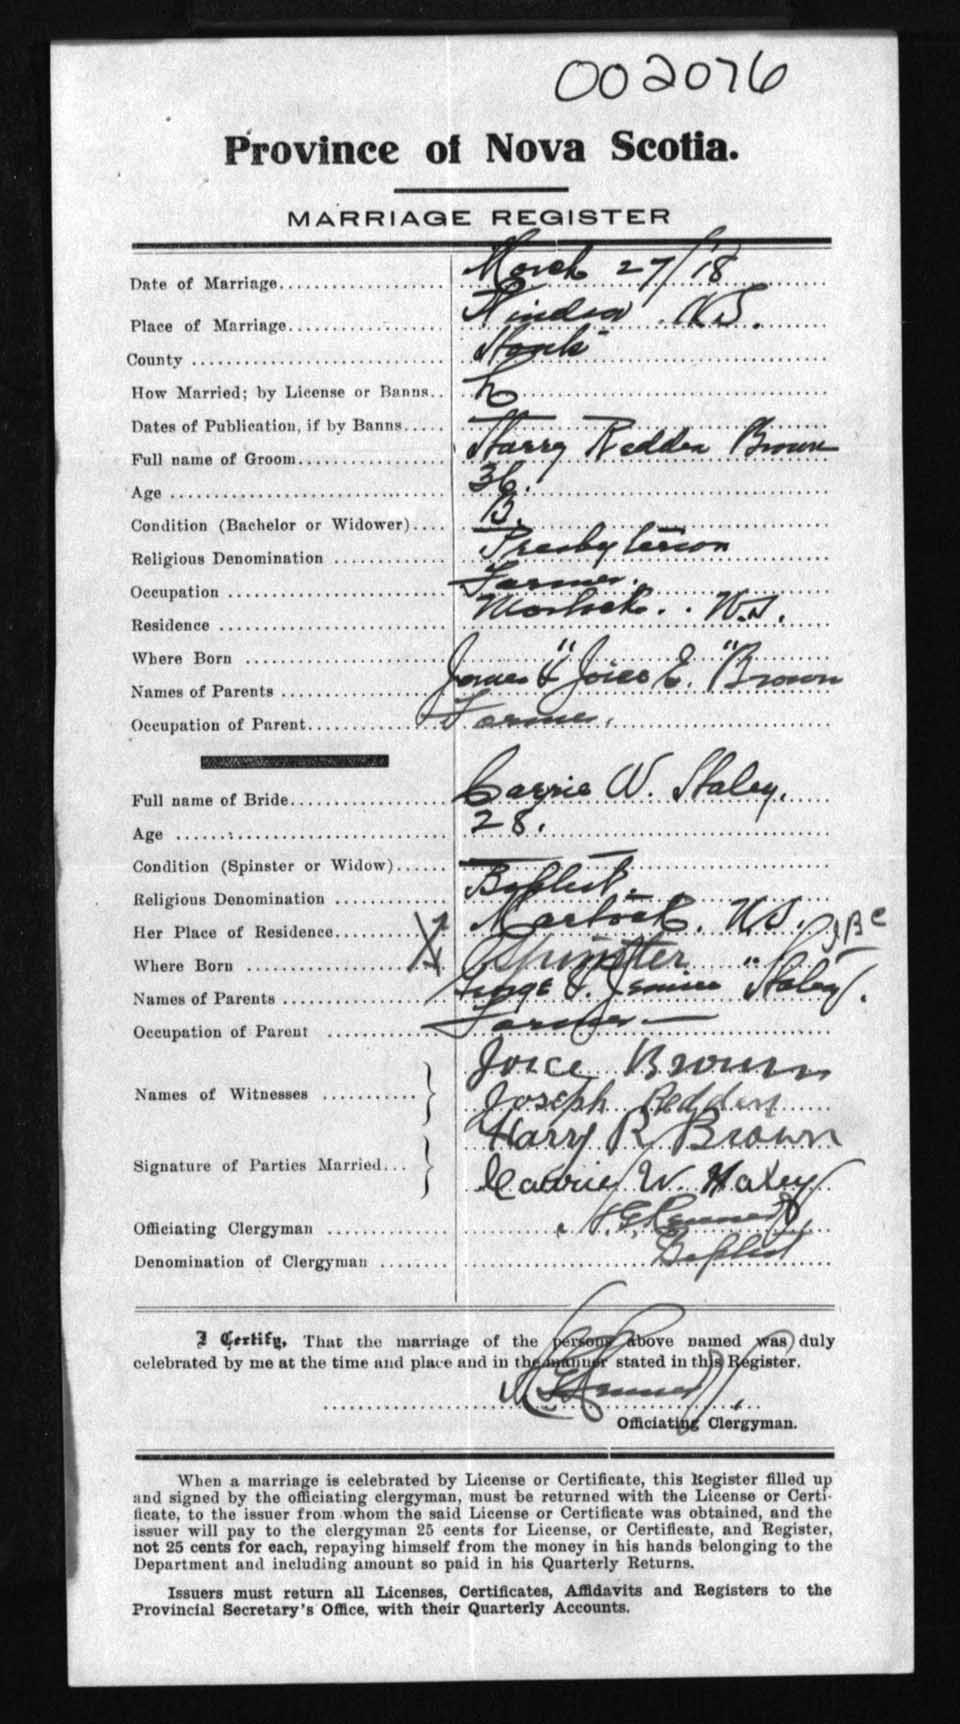 002076
Province of Nova Scotia.
MARRIAGE REGISTER
Date of Marriage March 27/18
Place of Marriage Windsor N.S.
County Hants
How Married; by License or Banns L
Dates of Publication, if by Banns
Full name of Groom Harry Redden Brown
Age 36.
Condition (Bachelor or Widower) B.
Religious Denomination Presbyterian
Occupation Farmer.
Residence Martock. N.S.
Where Born " "
Names of Parents James & Joice E. Brown
Occupation of Parent Farmer.
Full name of Bride Carrie W. Haley.
Age 28.
Condition (Spinster or Widow)
Religious Denomination Baptist.
Her Place of Residence Martock. N.S.
Where Born Spinster "
Names of Parents George & Haley.
Occupation of Parent Farmer
Names of Witnesses Joice Brown
Joseph Redden
Signature of Parties Married Harry R Brown
Carrie W. Haley
Officiating Clergyman
Denomination of Clergyman Baptist
I Certify, That the marriage of the persons above named was duly
celebrated by me at the time and place and in the manner stated in this Register.
Officiating Clergyman.
When a marriage is celebrated by License or Certificate, this Register filled up
and signed by the officiating clergyman, must be returned with the License or Certi-
ficate, to the issuer from whom the said License or Certificate was obtained, and the
issuer will pay to the clergyman 25 cents for License, or Certificate, and Register,
not 25 cents for each, repaying himself from the money in his hands belonging to the
Department and including amount so paid in his Quarterly Returns.
Issuers must return all Licenses, Certificates, Affidavits and Registers to the
Provincial Secretary's Office, with their Quarterly Accounts.